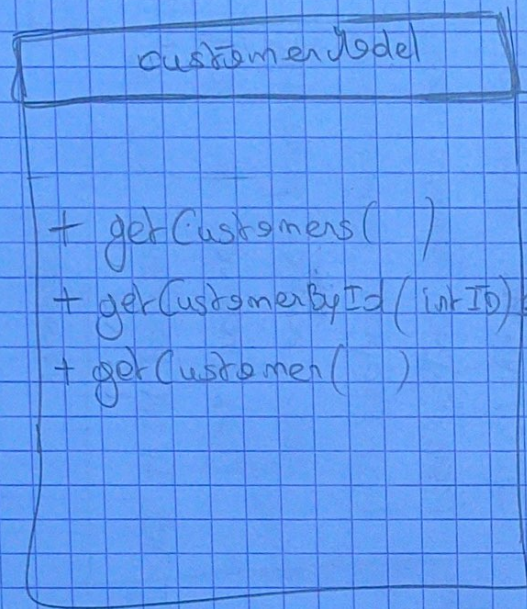 customerModel
+ getCustomers( )
+ getCustomerById (int ID)
+ getCustomer( )